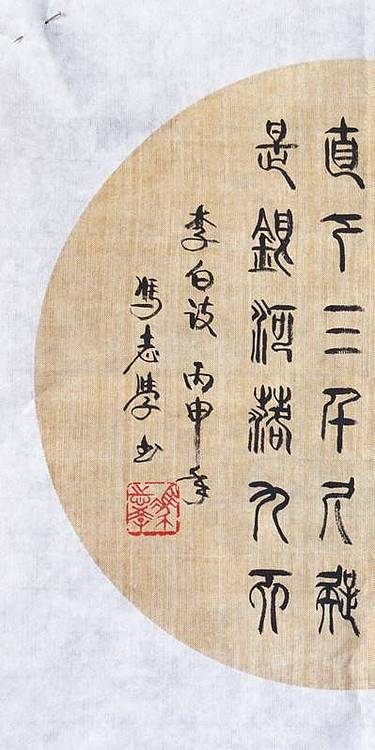 直下三千尺疑
是銀河落九天
李白诗 丙申年
馮志學书